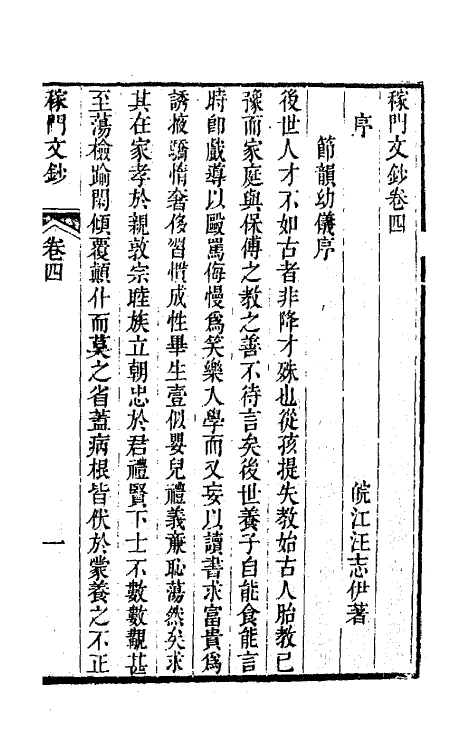 稼門文鈔卷四
皖江汪志伊著
序
節韻幼儀序
後世人才不如古者非降才殊也從孩提失教始古人胎教已
豫而家庭與保傅之教之善不待言矣後世養子自能食能言
時卽戲導以毆罵侮慢爲笑樂人學而又妄以讀書求富貴爲
誘掖驕惰奢侈習慣成性畢生壹似嬰兒禮義廉恥蕩然矣求
其在家孝於親敦宗睦族立朝忠於君禮賢下士不數數觀甚
至蕩檢踰閑傾覆顛仆而莫之省蓋病根皆伏於蒙養之不正
稼門文鈔
卷四
一